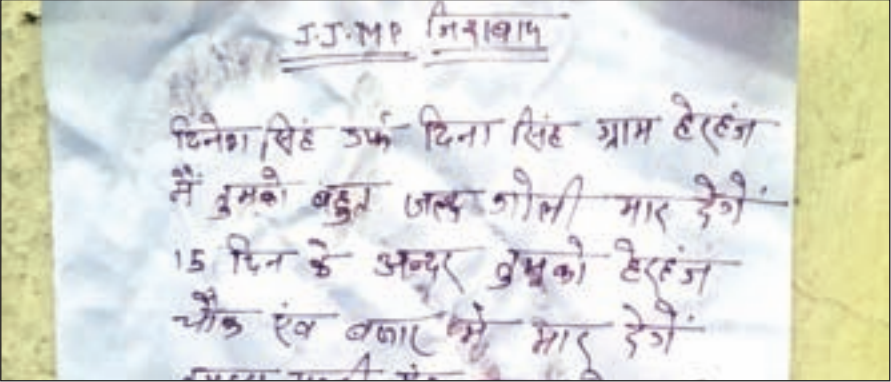 J.J.MP जिदाबाद
दिनेश सिंह उर्फ दिना सिंह ग्राम हेरहंज
मैं तुमको बहुत जल्द गोली मार देगें
15 दिन के अन्दर तुमको हेरहंज
चौक एंव बजार मे मार देगें